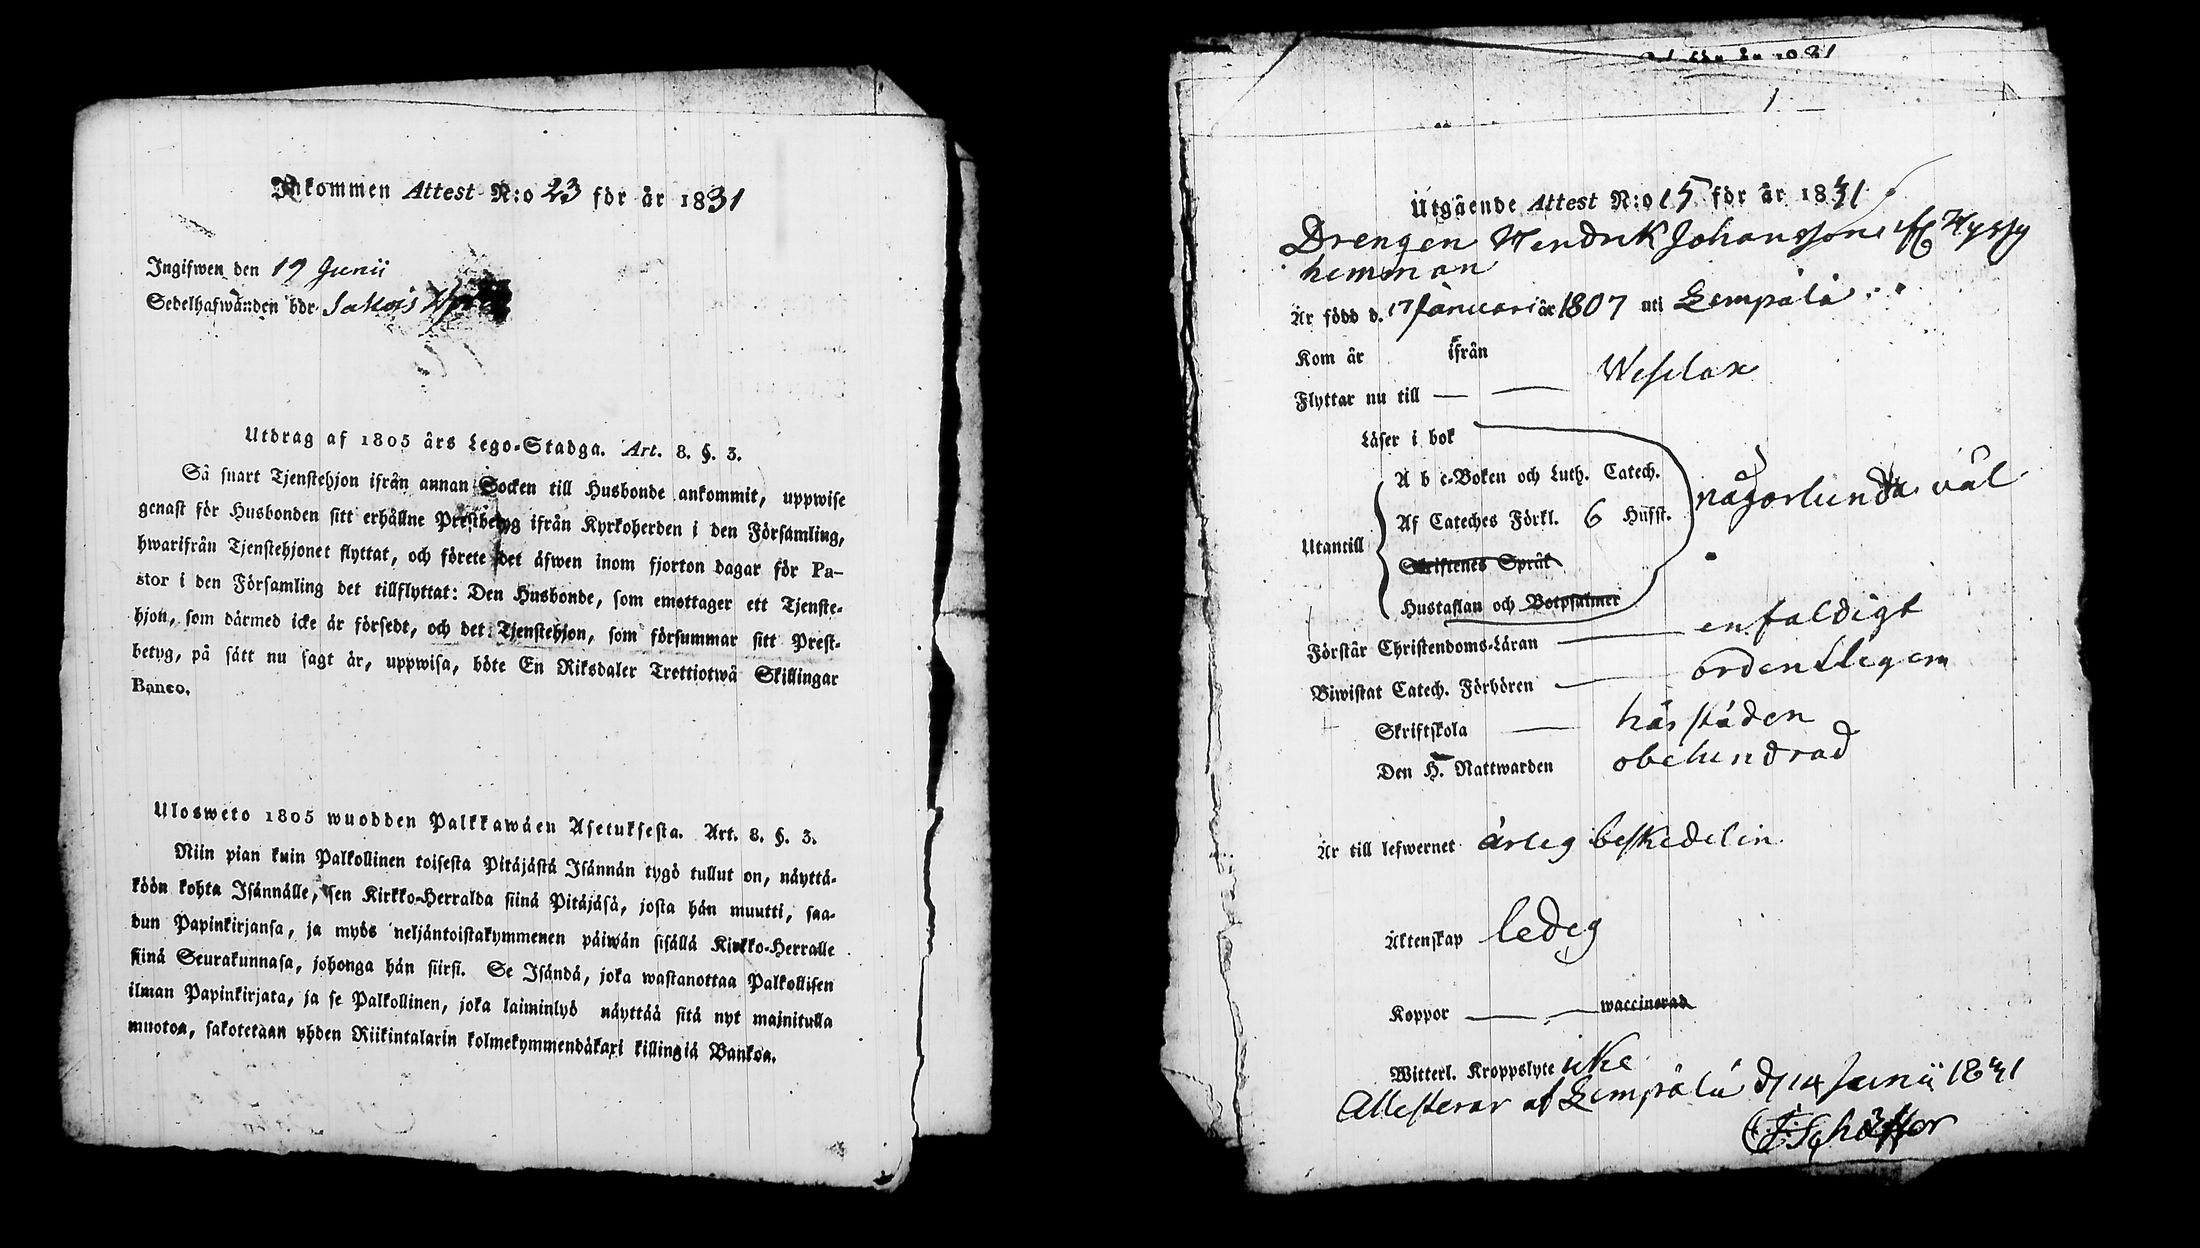 Inkommen Attest N:o 23 för år 1831
Ingifwen den 19 Junii
Sedelhafwanden bor
Utdrag af 1805 års Lego-Stadga. Art. 8. §. 3.
Så snart Tjenstehjon ifrån annan Socken till Husbonde ankommit, uppwise
genast för Husbonden sitt erhållne Prestbetyg ifrån Kyrkoherden i den Församling,
hwarifrån Tjenstehjonet flyttat, och förete det äfwen inom fjorton dagar för Pa-
stor i den Församling det tillflyttat: Den Husbonde, som emottager ett Tjenste-
hjon, som därmed icke är försedt, och det Tjenstehjon, som försummar sitt Prest-
betyg, på sätt nu sagt är, uppwisa, böte En Riksdaler Trettiotwå Skillingar
Banco.
Ulosweto 1805 wuodden Palkkawäen Asetuksesta. Art. 8. §. 3.
Niin pian kuin Palkollinen toisesta Pitäjästä Isännän tygö tullut on, näyttä-
köön kohta Isännälle, sen Kirkko-Herralda siinä Pitäjäsä, josta hän muutti, saa-
dun Papinkirjansa, ja myös neljäntoistakymmenen päiwän sisällä Kirkko-Herralle
siinä Seurakunnasa, johonga hän siirsi. Se Isändä, joka wastanottaa Palkollisen
ilman Papinkirjata, ja se Palkollinen, joka laiminlyö näyttää sitä nyt majnitulla
muotoa, sakotetaan yhden Riikintalarin kolmekymmendäkaxi killingiä Bankoa.
1
Utgående Attest N:o 15 för år 1831
Drengen Hendrik Johansson
hemman
Är född d. 17 Januari år 1807 uti Lempälä
Kom år ifrån
Flyttar nu till — — Wesilax
Läser i bok
A b c-Boken och Luth. Catech.
någorlunda väl
Af Cateches Förkl. 6 Hufst.
Utantill
Skriftenes Språk
Hustaflan och Botpsalmer
Förstår Christendoms-Läran — enfaldigt
Biwistat Catech. Förhören — ordentligen
Skriftskola — härstäden
Den H. Nattwarden obehindrad
Är till lefwernet ärlig beskedelin
Äktenskap ledig
Koppor — — waccinerad
Witterl. Kroppslyte icke
Attesterar af Lempälä d 14 Junii 1831